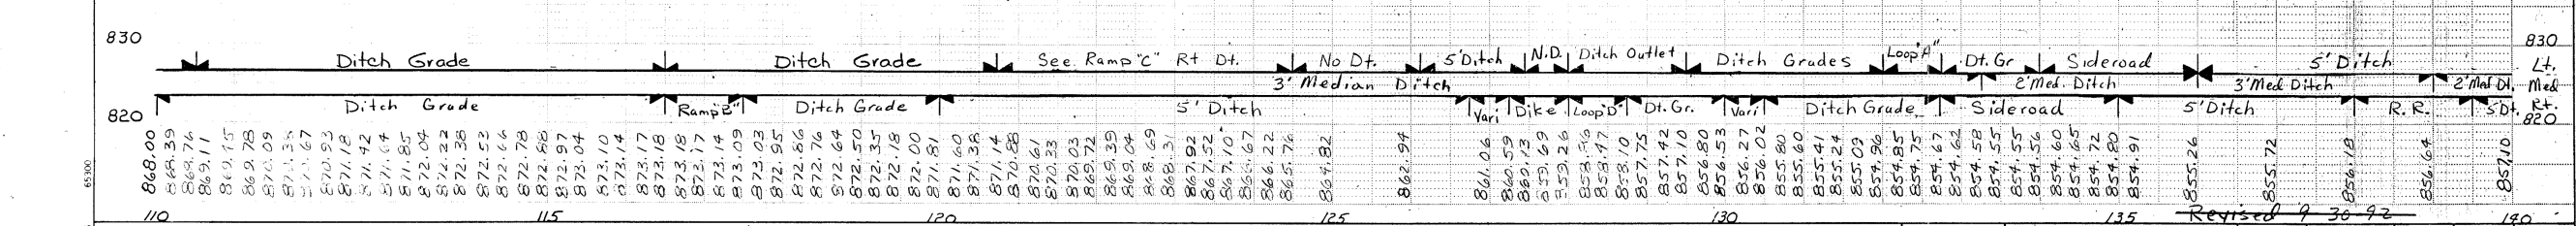 830
830
Ditch Grade Ditch Grade See Ramp "C" Rt Dt. No Dt. 5' Ditch N.D. Ditch Outlet Ditch Grades Loop "A" Dt. Gr Sideroad 5' Ditch Lt.
3' Median Ditch 2' Med. Ditch 3' Med Ditch 2' Med Dt. Med
Ditch Grade Ramp "B" Ditch Grade 5' Ditch Vari Dike Loop "D" Dt. Gr. Vari Ditch Grade Sideroad 5' Ditch R.R. 5' Dt. Rt.
820
820
868.00 868.39 868.76 869.11 869.45 869.78 870.09 870.67 870.93 871.18 871.42 871.64 871.85 872.04 872.22 872.38 872.53 872.66 872.78 872.88 872.97 873.04 873.10 873.14 873.17 873.18 873.18 873.17 873.14 873.09 873.03 872.95 872.86 872.76 872.64 872.50 872.35 872.18 872.00 871.81 871.60 871.38 871.14 870.88 870.61 870.33 870.03 869.72 869.39 869.04 868.69 868.31 867.92 867.52 867.10 866.67 866.22 865.76 864.82 862.94 861.06 860.59 860.13 859.69 859.26 858.86 858.47 858.10 857.75 857.42 857.10 856.80 856.53 856.27 856.02 855.80 855.60 855.41 855.24 855.09 854.96 854.85 854.75 854.67 854.62 854.58 854.55 854.55 854.56 854.60 854.65 854.72 854.80 854.91 855.26 855.72 856.18 856.64 857.10
65300
110 115 120 125 130 135 Revised 9-30-92 140